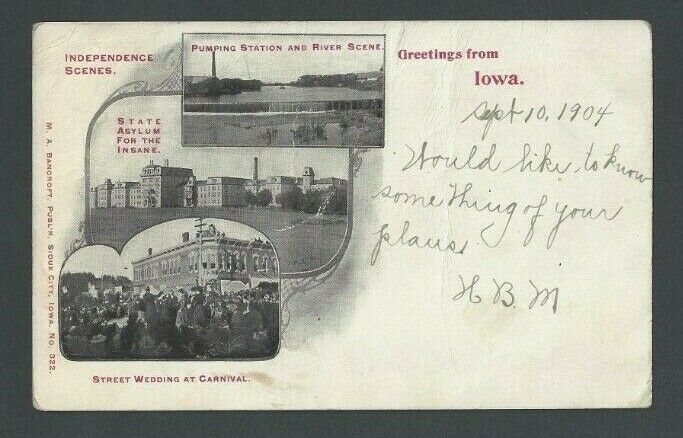 INDEPENDENCE
SCENES.
PUMPING STATION AND RIVER SCENE.
STATE
ASYLUM
FOR THE
INSANE.
STREET WEDDING AT CARNIVAL.
M. A. BANCROFT, PUBL'R, SIOUX CITY, IOWA. NO. 322.
Greetings from
Iowa.
Sept 10, 1904
Would like to know
something of your
plans.
H B M